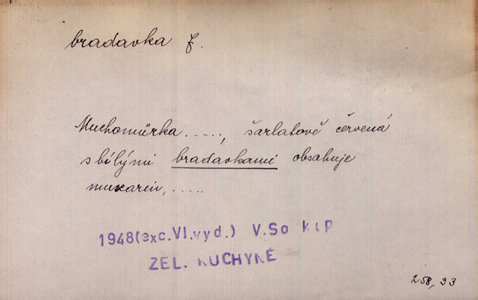 bradavka f.
Muchomůrka ....., šarlatově červená
s bílými bradavkami obsahuje
muskarin, .....
1948(exc.VI.vyd.) V.So KLP
ZEL. KUCHYNĚ
258, 33